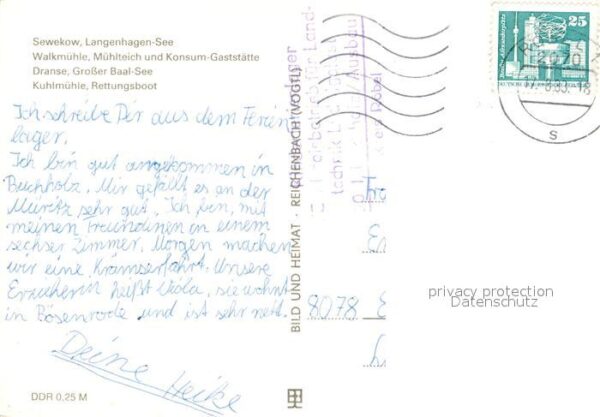 Sewekow, Langenhagen-See
Walkmühle, Mühlteich und Konsum-Gaststätte
Dranse, Großer Baal-See
Kuhlmühle, Rettungsboot
Ich schreibe Dir aus dem Ferien
lager.
Ich bin gut angekommen in
Buchholz. Mir gefällt es an der
Müritz sehr gut. Ich bin, mit
meinen Freundinen in einem
sechser Zimmer. Morgen machen
wir eine Krämserfahrt. Unsere
Erzieherin heißt Viola, sie wohnt
in Bösenrode und ist sehr nett.
Deine Heike
DDR 0,25 M
BILD UND HEIMAT · REICHENBACH (VOGTL)
25
2070
s
8078
privacy protection
Datenschutz